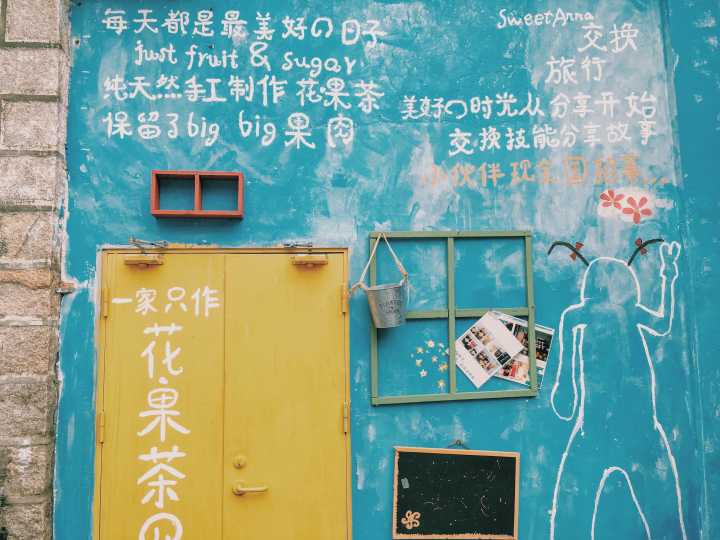 每天都是最美好の日子
just fruit & sugar
纯天然手工制作 花果茶
保留了big big果肉
SweetAnna
交换
旅行
美好の时光从分享开始
交换技能分享故事
小伙伴现全国招募...
一家只作
花果茶の